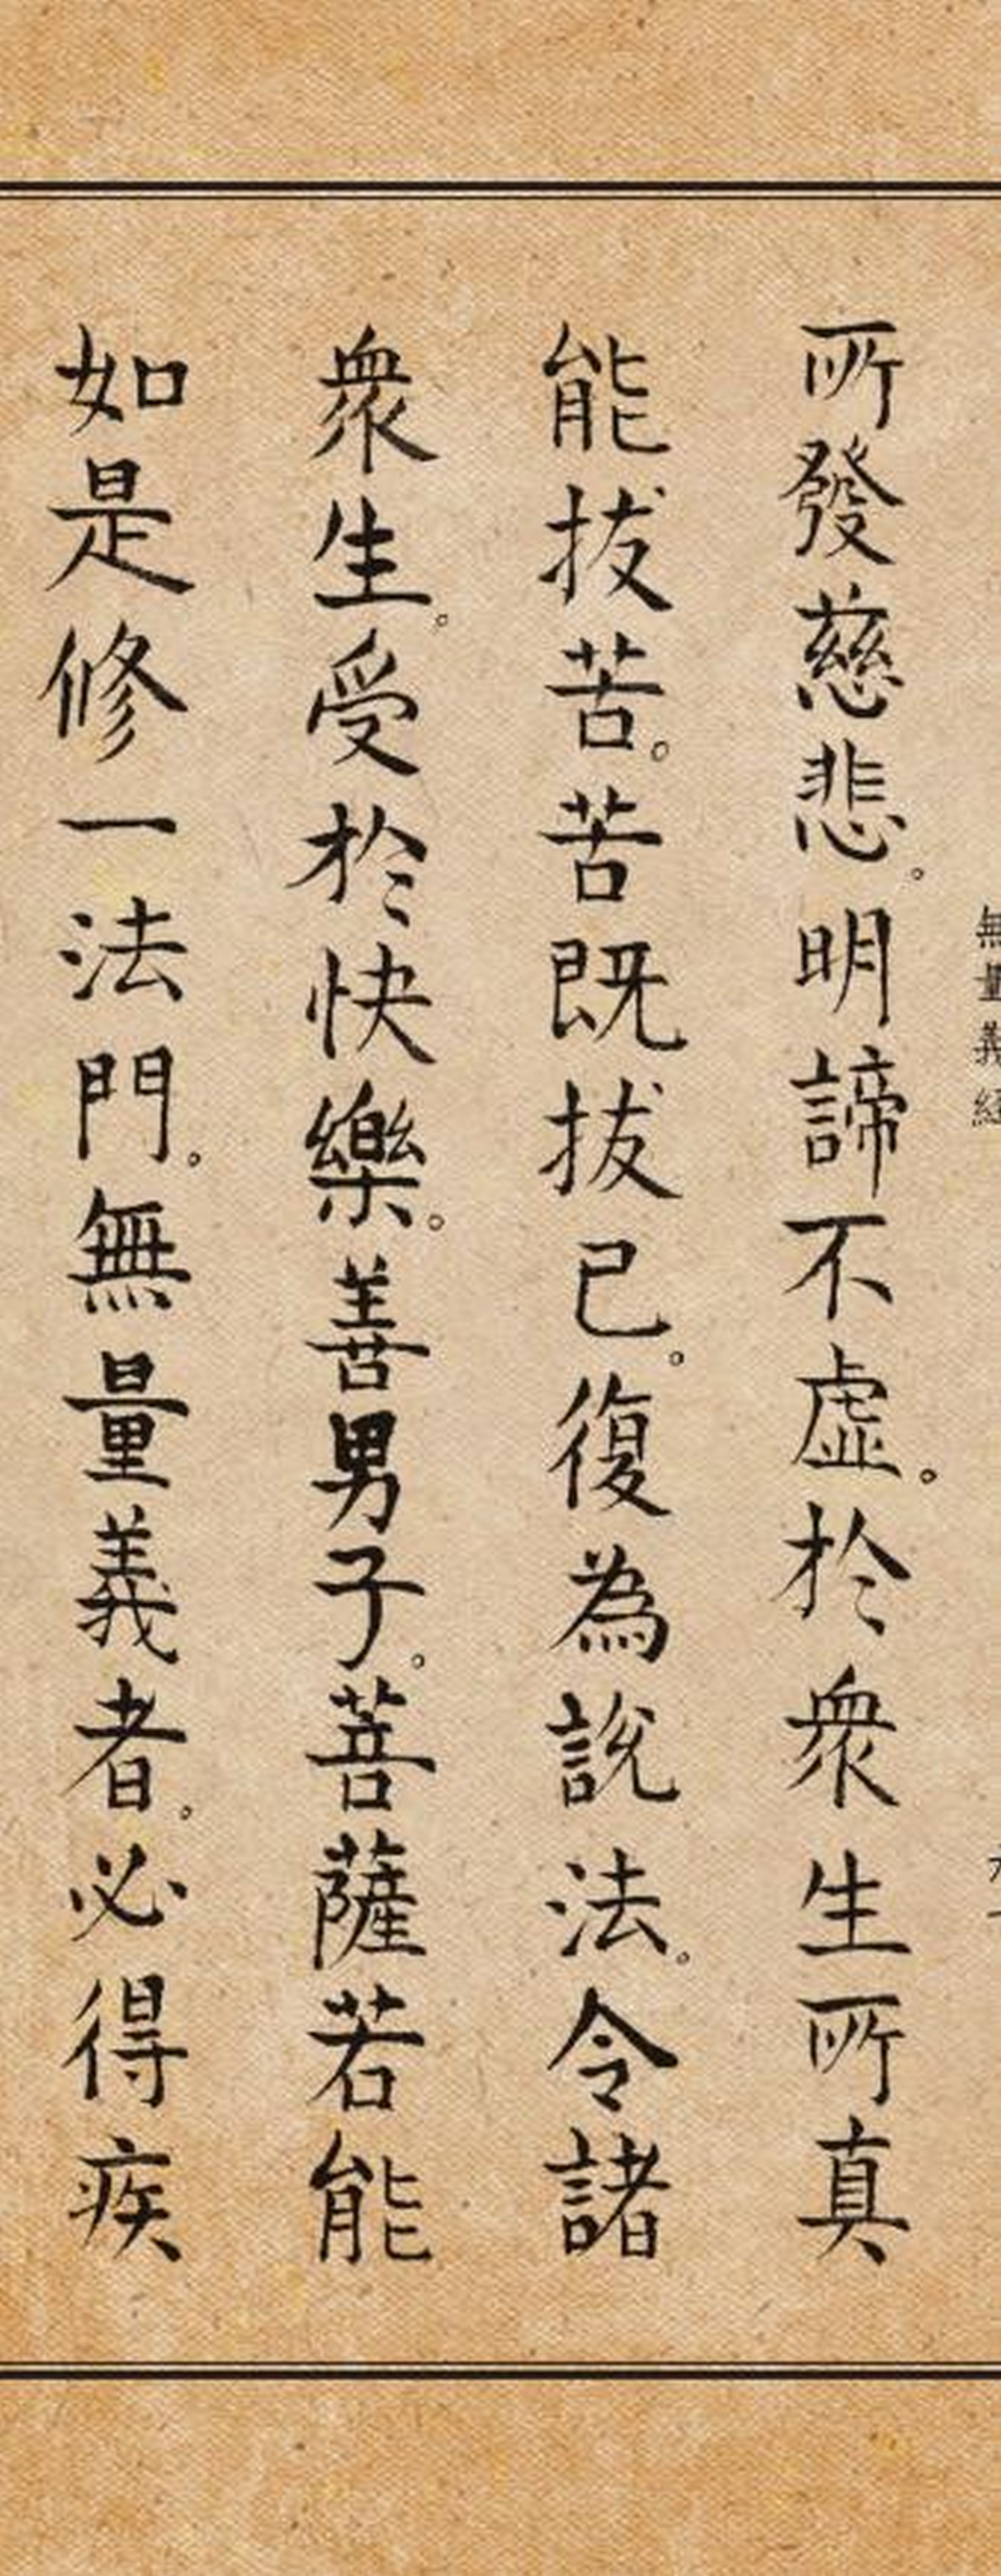 無量義經
所發慈悲。明諦不虛。於眾生所真
能拔苦。苦既拔已。復為說法。令諸
眾生。受於快樂。善男子。菩薩若能
如是修一法門。無量義者。必得疾